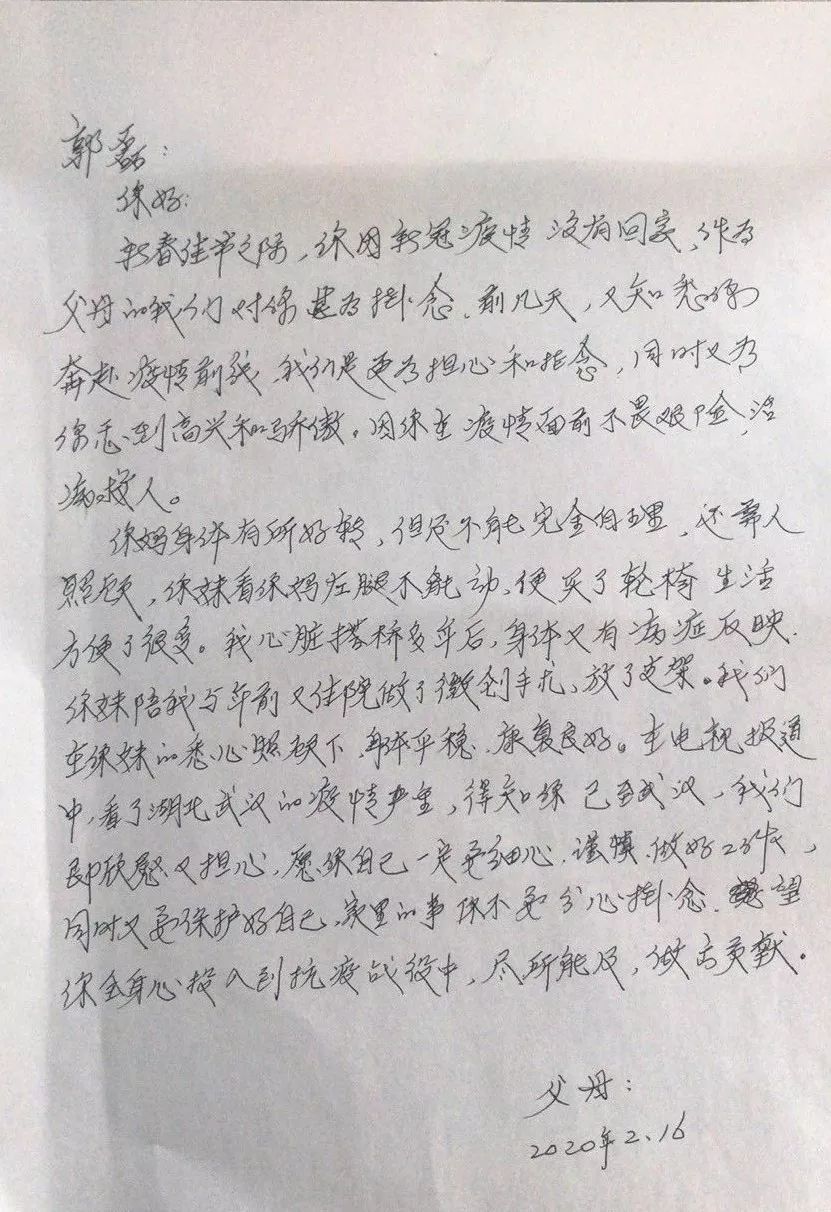 郭磊：
你好：
新春佳节之际，你因新冠疫情没有回家，作为
父母的我们对你甚为挂念。前几天，又知悉你
奔赴疫情前线，我们是更为担心和挂念，同时又为
你感到高兴和骄傲。因你在疫情面前不畏艰险，治
病救人。
你妈身体有所好转，但还不能完全自理，还靠人
照顾，你妹看你妈左腿不能动，便买了轮椅生活
方便了很多。我心脏搭桥多年后，身体又有病症反映，
你妹陪我与年前又住院做了微创手术，放了支架。我们
在你妹的悉心照顾下，身体平稳，康复良好。在电视报道
中，看了湖北武汉的疫情严重，得知你已至武汉，我们
即欣慰又担心，愿你自己一定要细心，谨慎，做好工作，
同时又要保护好自己，家里的事你不要分心掛念，望
你全身心投入到抗疫战役中，尽所能及，做出贡献。
父母：
2020年2.16